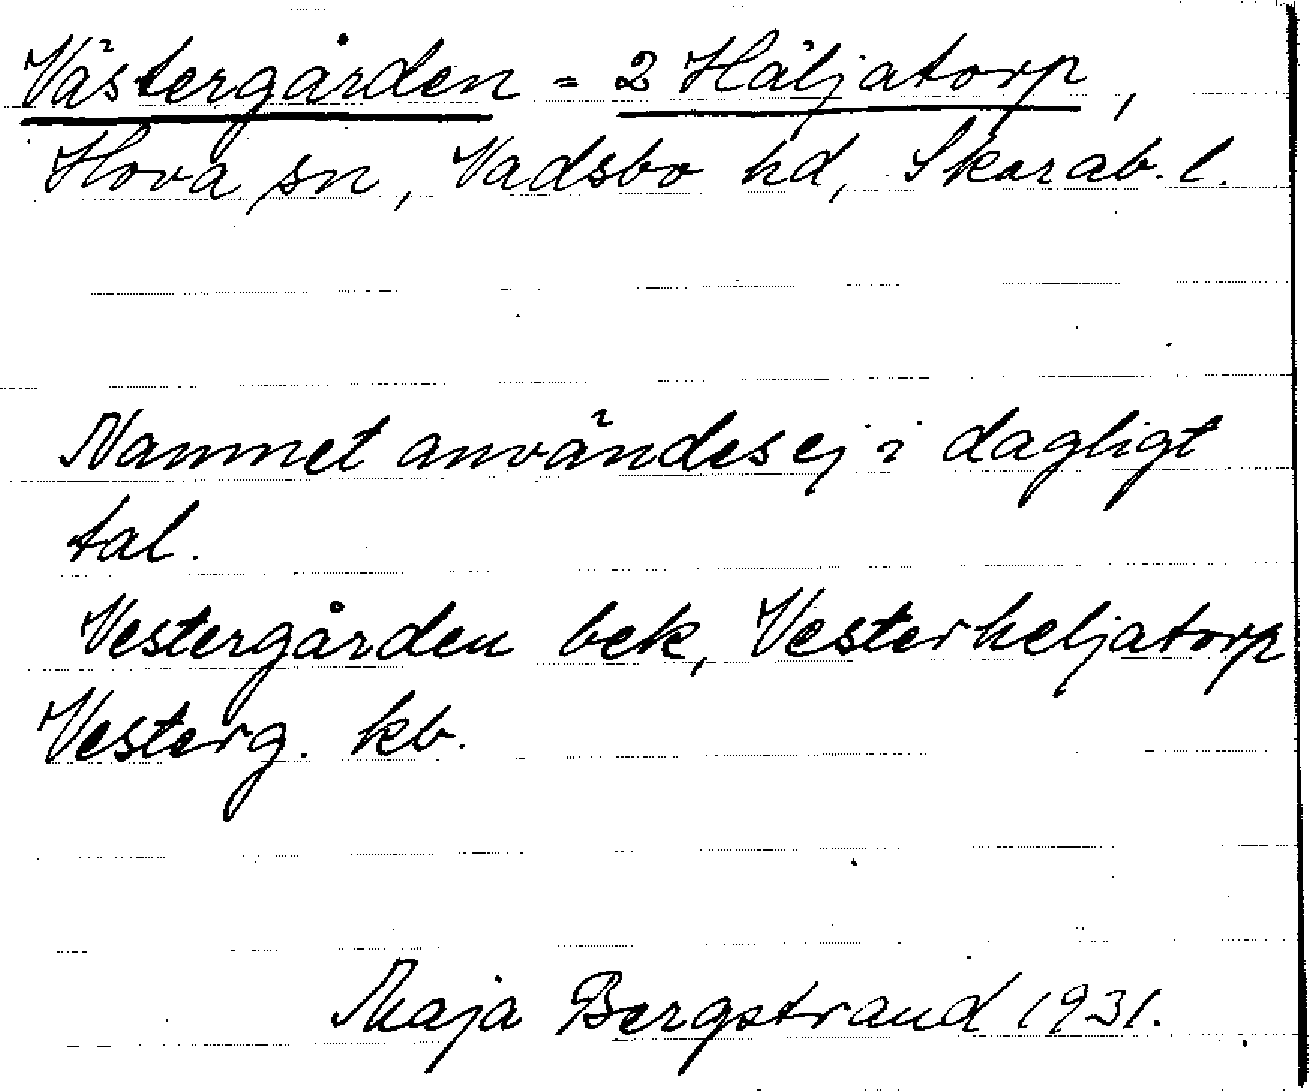 Västergården = 2 Häljatorp,
Hova sn, Vadsbo hd, Skarab. l.
Namnet användes ej i dagligt
tal.
Vestergården bek, Vesterheljatorp
Vesterg. kb.
Maja Bergstrand 1931.